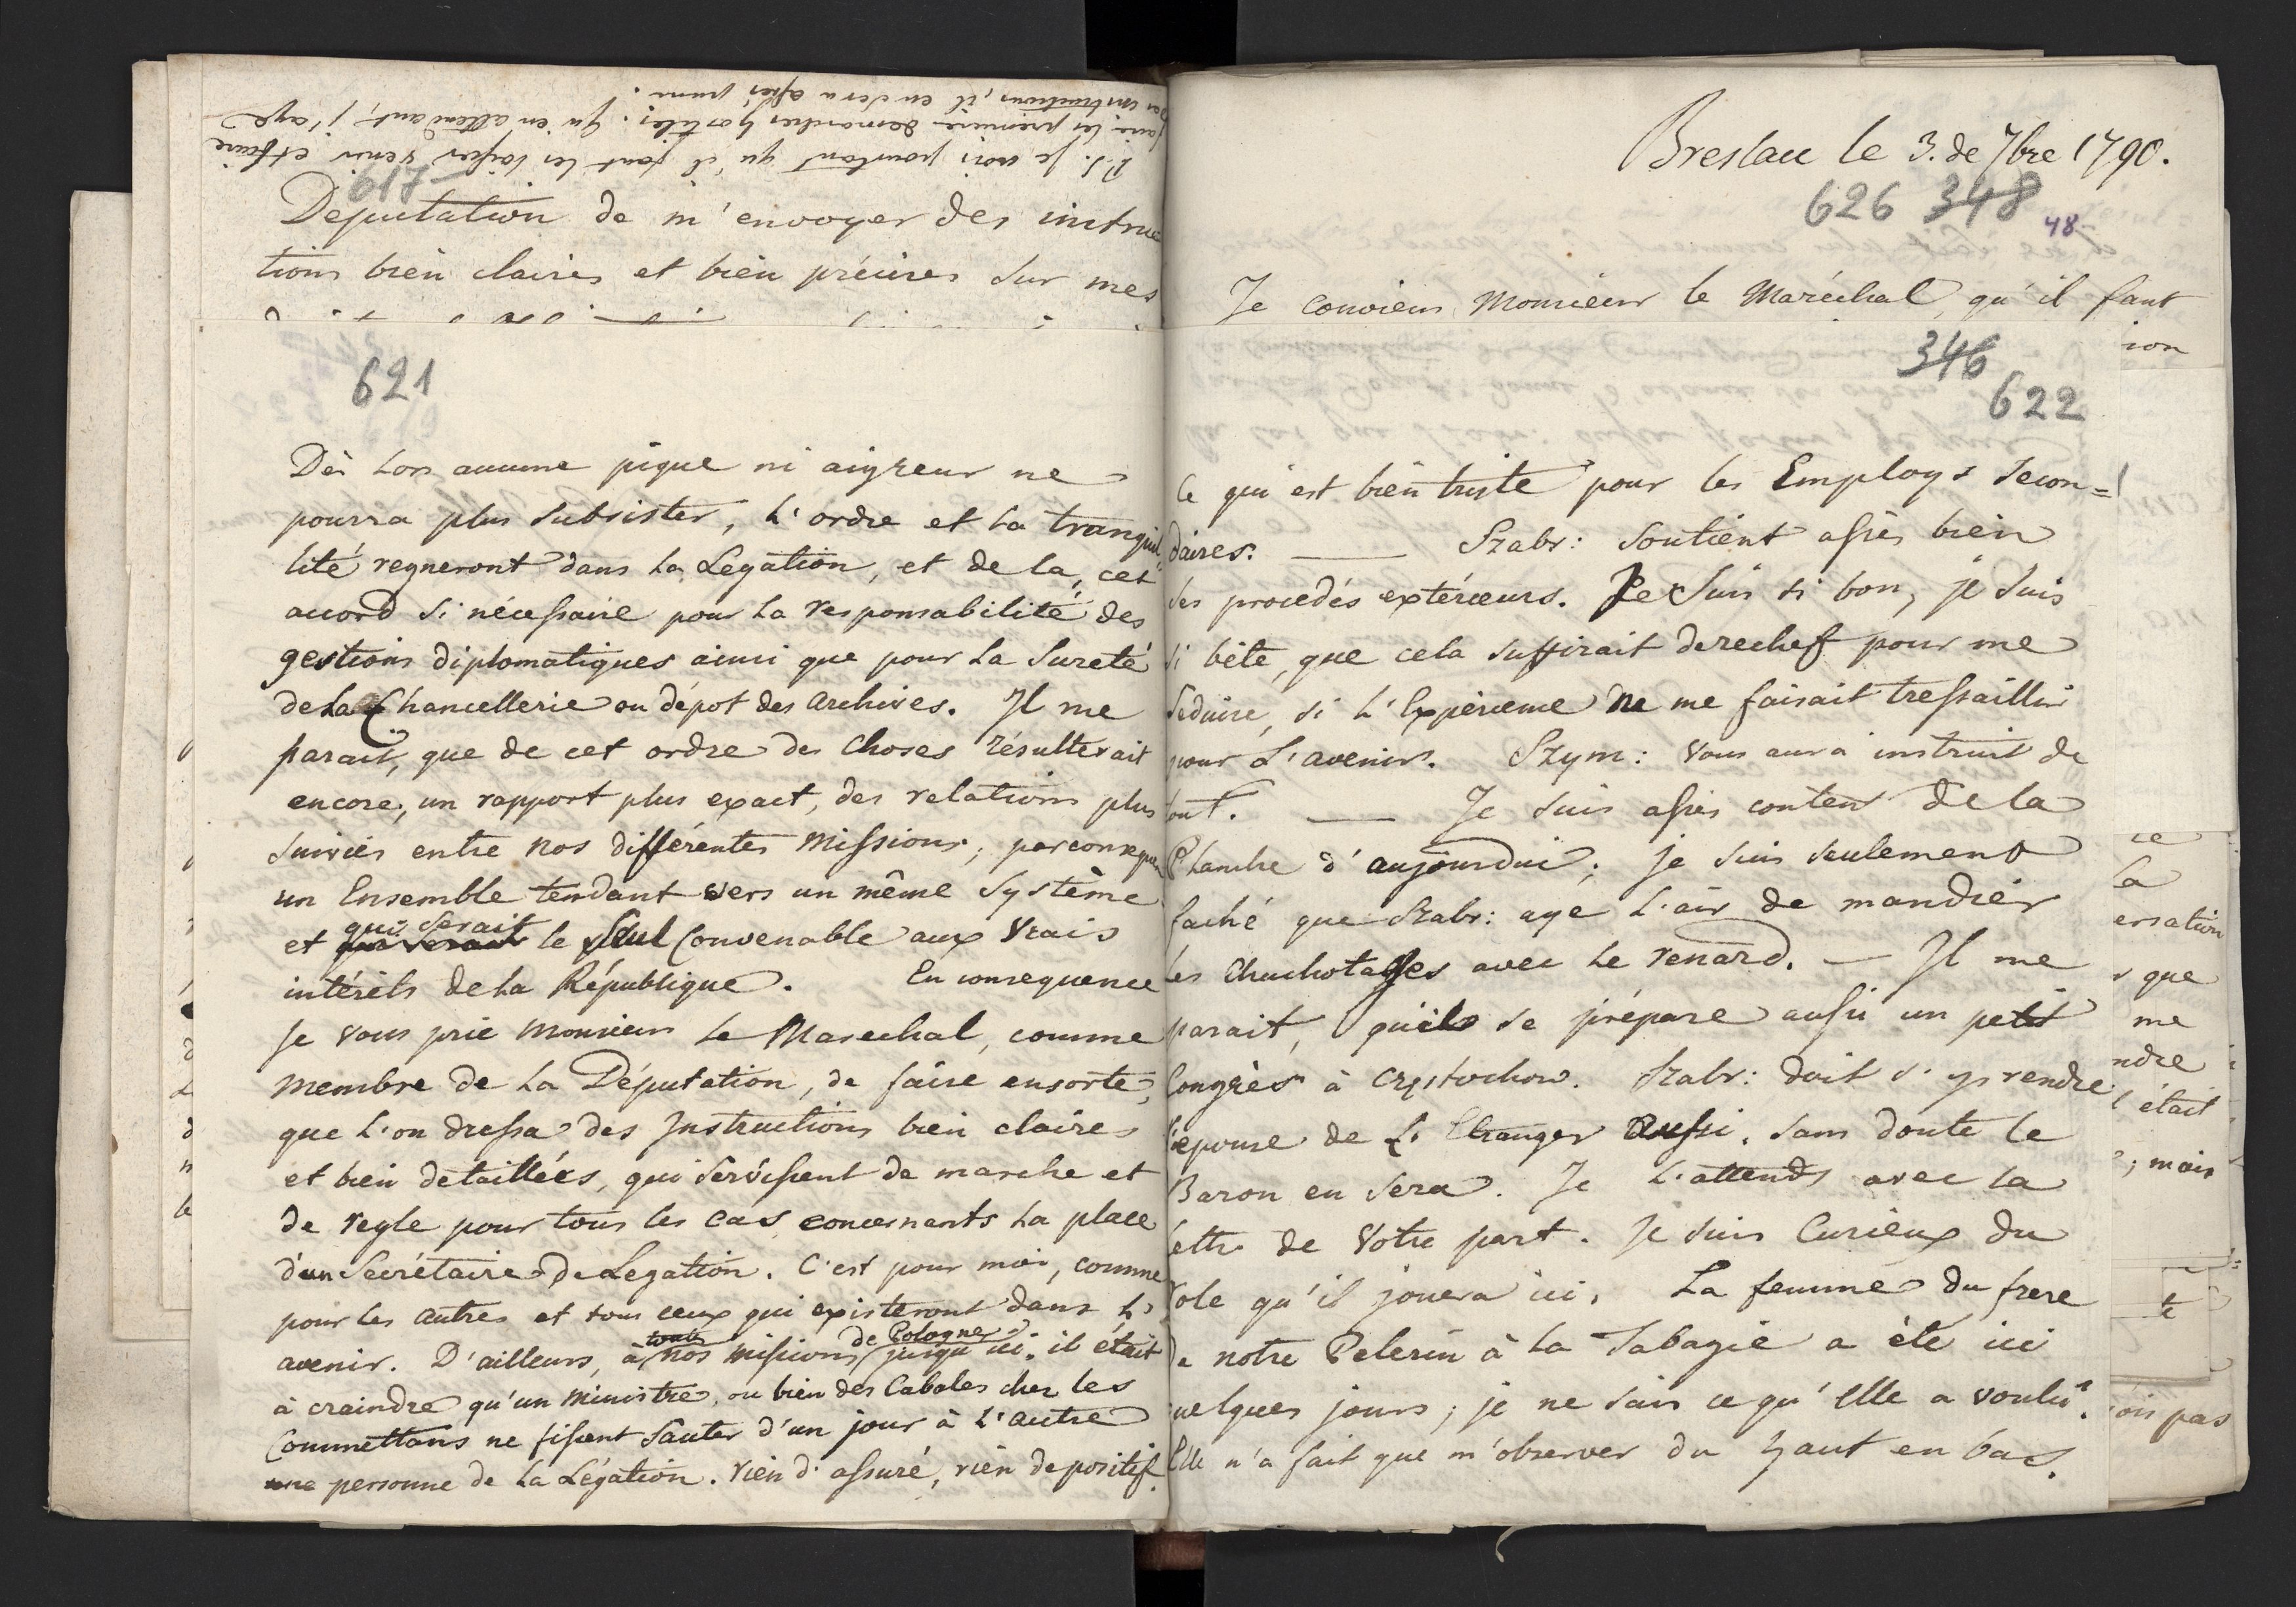 P.S. Je vois pourtant qu'il faut les laisser venir et faire
faire les premieres demarches hostiles. Qu'en attendant j'aye
des instructions, il en sera assés panu.
617
Deputation de m'envoyer des instruc
tions bien claires et bien précises sur mes
621
Dès lors aucune pique ni aigreur ne
pourra plus subsister, l'ordre et la tranquil=
lité regneront dans la Legation, et de la, cet
accord si nécessaire pour la responsabilité des
gestions diplomatiques ainsi que pour la sureté
de la Chancellerie ou dépot des archives. Il me
parait, que de cet ordre des choses résulterait
encore, un rapport plus exact, des relations plus
suivies entre nos différentes missions, par conseque
un Ensemble tendant vers un même Système
qui serait
et qui serait le seul Convenable aux vrais
intérêts de la République. En consequence
je vous prie Monsieur le Marechal, comme
membre de la Députation, de faire ensorte,
que l'on dressa des Instructions bien claires
et bien detaillées, qui servissent de marche et
de regle pour tous les cas concernants la place
d'un Secrétaire de Legation. C'est pour moi, comme
pour les autres et tous ceux qui existeront dans l'
toutes de Pologne
avenir. D'ailleurs, à nos missions jusqu'ici, il était
à craindre qu'un Ministre, ou bien des Cabales chez les
Commettans ne fissent sauter d'un jour à l'autre
une personne de la Légation. rien d'assuré, rien de positif.
Breslau le 3. de 7bre 1790.
626 348
48
Je conviens Monsieur le Maréchal, qu'il faut
ion
346
622
Ce qui est bien triste pour les Employs secon=
daires. — Szabr: soutient assés bien
ses procedés extérieurs. Je suis si bon, je suis
si bête, que cela suffirait derechef pour me
seduire, si l'Experience ne me faisait tressaillir
pour l'avenir. Szym: vous aura instruit de
tout. — Je suis assés content de la
Planche d'aujourdui; je suis seulement
faché que Szabr: aye l'air de mandier
les chuchotages avec le renard. — Il me
parait, qu'ils se prépare aussi un petit
Congrès à Czestochow. Szabr: doit s'y rendre
l'epouse de l'Etranger aussi. Sans doute le
Baron en sera. Je l'attends avec la
lettre de Votre part. Je suis Curieux du
role qu'il jouera ici. La femme du frere
de notre Pelerin à la Tabagie a été ici
quelques jours; je ne sais ce qu'elle a voulu.
Elle n'a fait que m'observer du haut en bas.
ce
la
ersation
s que
me
ndre
était
; mais
ois pas